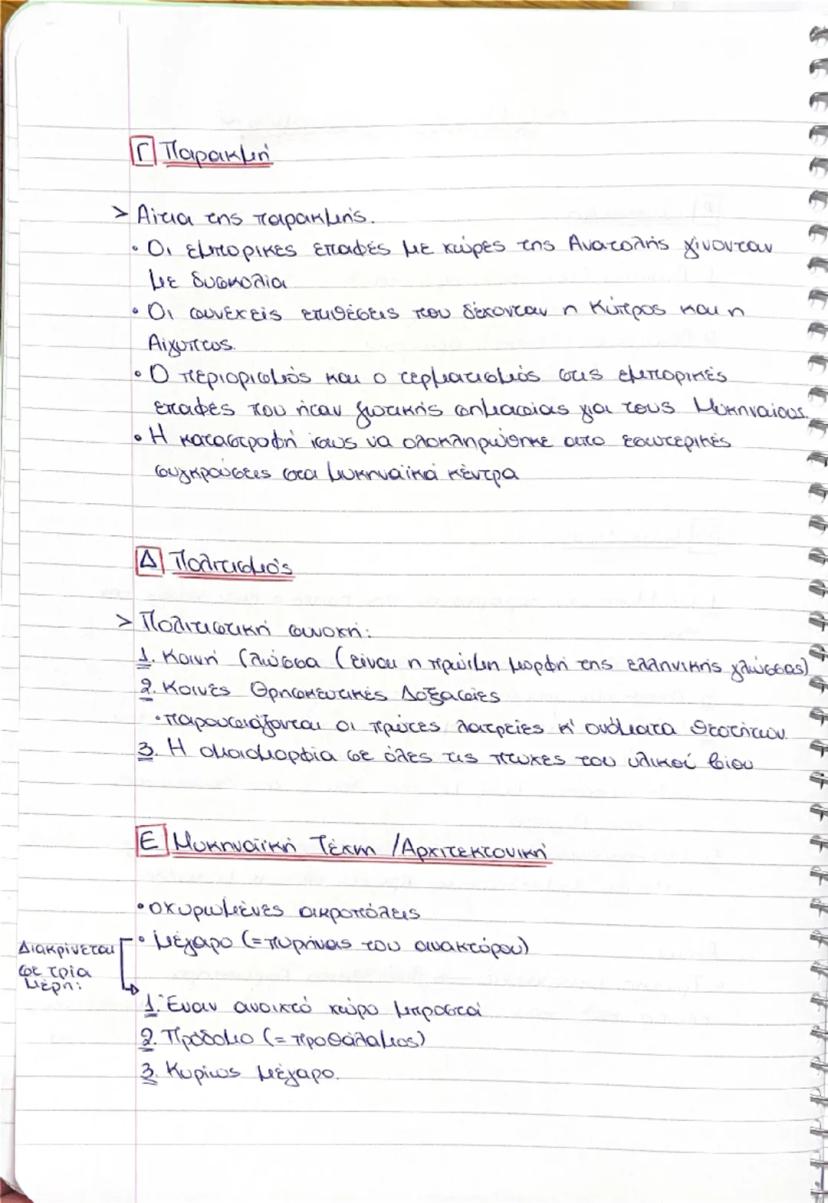 Γ Παρακμή
> Αίτια της παρακμής.
• Οι εμπορικές επαφές με χώρες της Ανατολής γίνονταν
με δυσκολία
• Οι συνεχείς επιθέσεις που δέχονταν η Κύπρος και η
Αίγυπτος.
• Ο περιορισμός και ο τερματισμός στις εμπορικές
επαφές που ήταν ζωτικής σημασίας για τους Μυκηναίους.
• Η καταστροφή ίσως να ολοκληρώθηκε απο εσωτερικές
συγκρούσεις στα μυκηναϊκά κέντρα
Δ Πολιτισμός
> Πολιτιστική συνοχή:
1. Κοινή Γλώσσα (είναι η πρώιμη μορφή της ελληνικής γλώσσας)
2. Κοινές Θρησκευτικές Δοξασίες
• παρουσιάζονται οι πρώτες λατρείες κ' ονόματα θεοτήτων.
3. Η ομοιομορφία σε όλες τις πτυχες του υλικού βίου
Ε Μυκηναϊκή Τέχνη /Αρχιτεκτονική
• οχυρωμένες ακροπόλεις
• μέγαρο (=πυρήνας του ανακτόρου)
Διακρίνεται
σε τρία
μέρη:
1. Έναν ανοικτό χώρο μπροστά
2. Πρόδομο (=προθάλαμος)
3. Κυρίως μέγαρο.